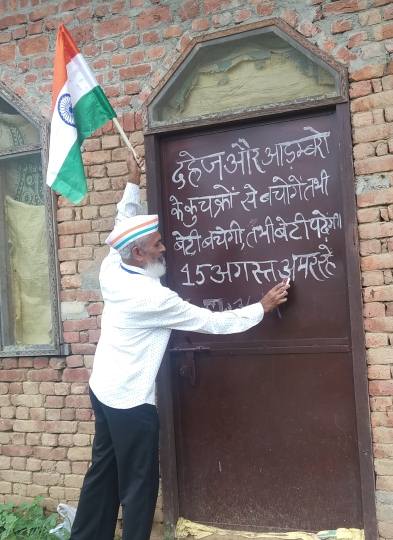 दहेज और आडम्बरो
के कुचक्रों से बचोगें तभी
बेटी बचेगी, तभी बेटी पढ़ेगी।
15 अगस्त अमर रहे